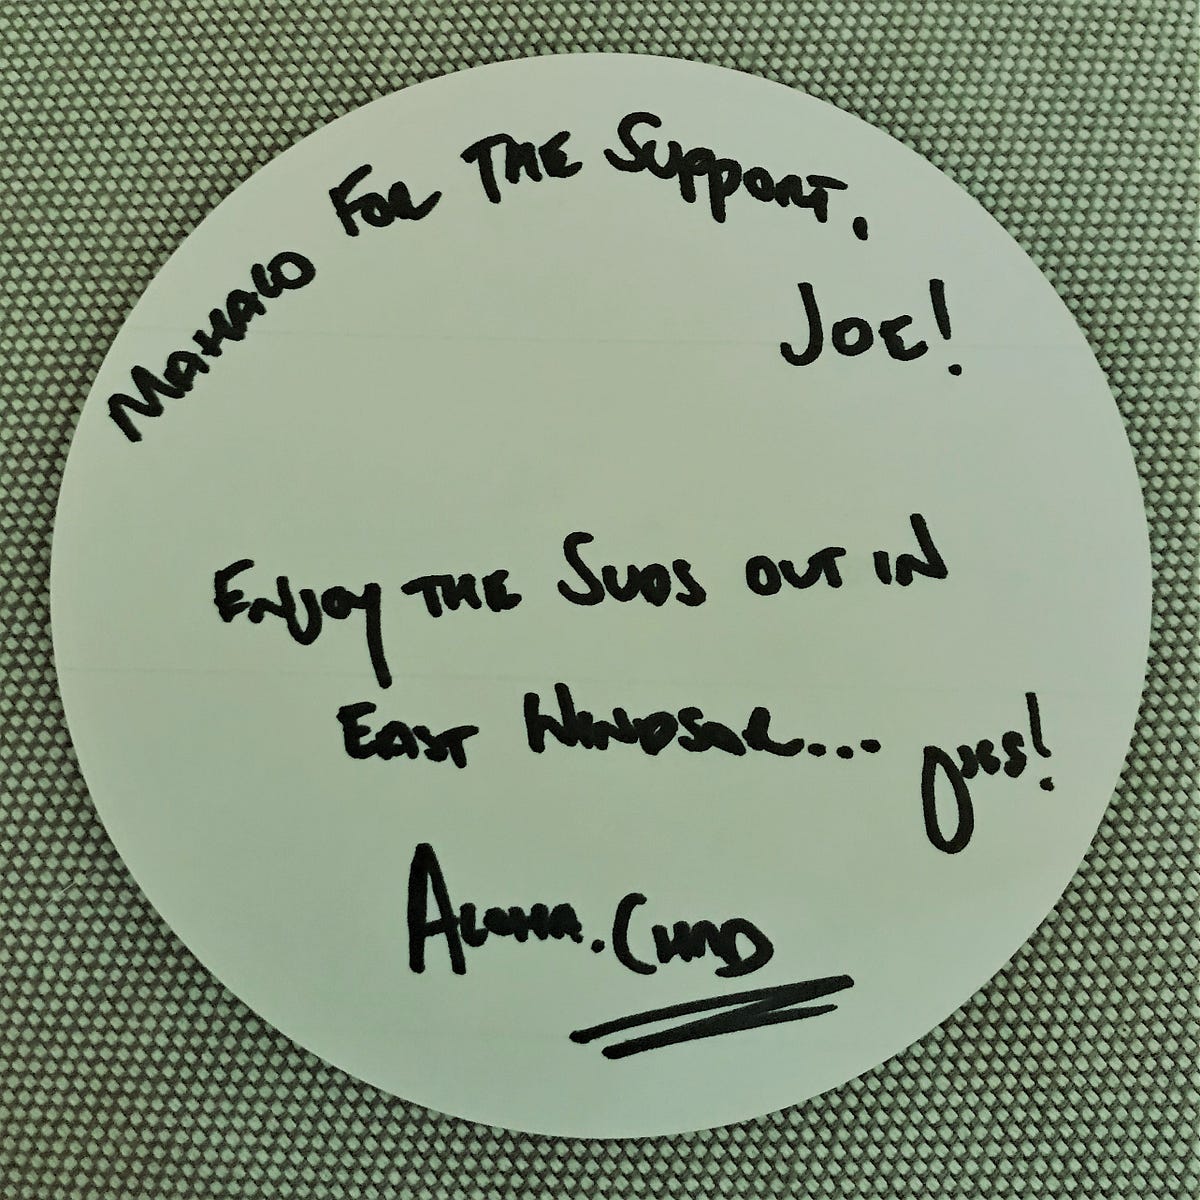 MAHALO FOR THE SUPPORT,
JOE!
ENJOY THE SUDS OUT IN
EAST WINDSOR...
ALOHA. CHAD